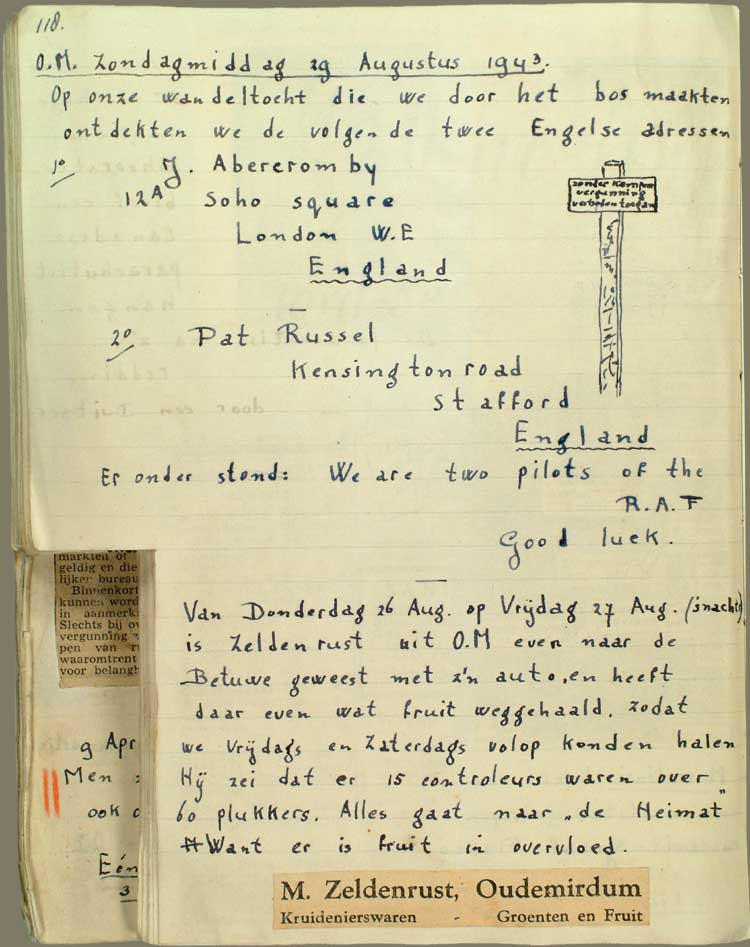 118.
O.M. Zondagmiddag 29 Augustus 1943.
Op onze wandeltocht die we door het bos maakten
ontdekten we de volgende twee Engelse adressen
1º J. Abercromby
12A Soho square
London W.E
England
zonder kampeer
vergunning
verboden toegang
2º Pat Russel
Kensington road
Stafford
England
Er onder stond: We are two pilots of the
R.A.F
Good luck.
markten of
geldig en die
lijker bureau
Binnenkort
kunnen word
in aanmerk
Slechts bij ov
vergunning
pen van r
waaromtrent
voor belangh
9 Apr
Men
ook
Eén
3
Van Donderdag 26 Aug. op Vrijdag 27 Aug. ('snachts)
is Zeldenrust uit O.M even naar de
Betuwe geweest met z'n auto, en heeft
daar even wat fruit weggehaald. zodat
we Vrijdags en Zaterdags volop konden halen
Hij zei dat er 15 controleurs waren over
60 plukkers. Alles gaat naar „de Heimat"
Want er is fruit in overvloed.
M. Zeldenrust, Oudemirdum
Kruidenierswaren - Groenten en Fruit